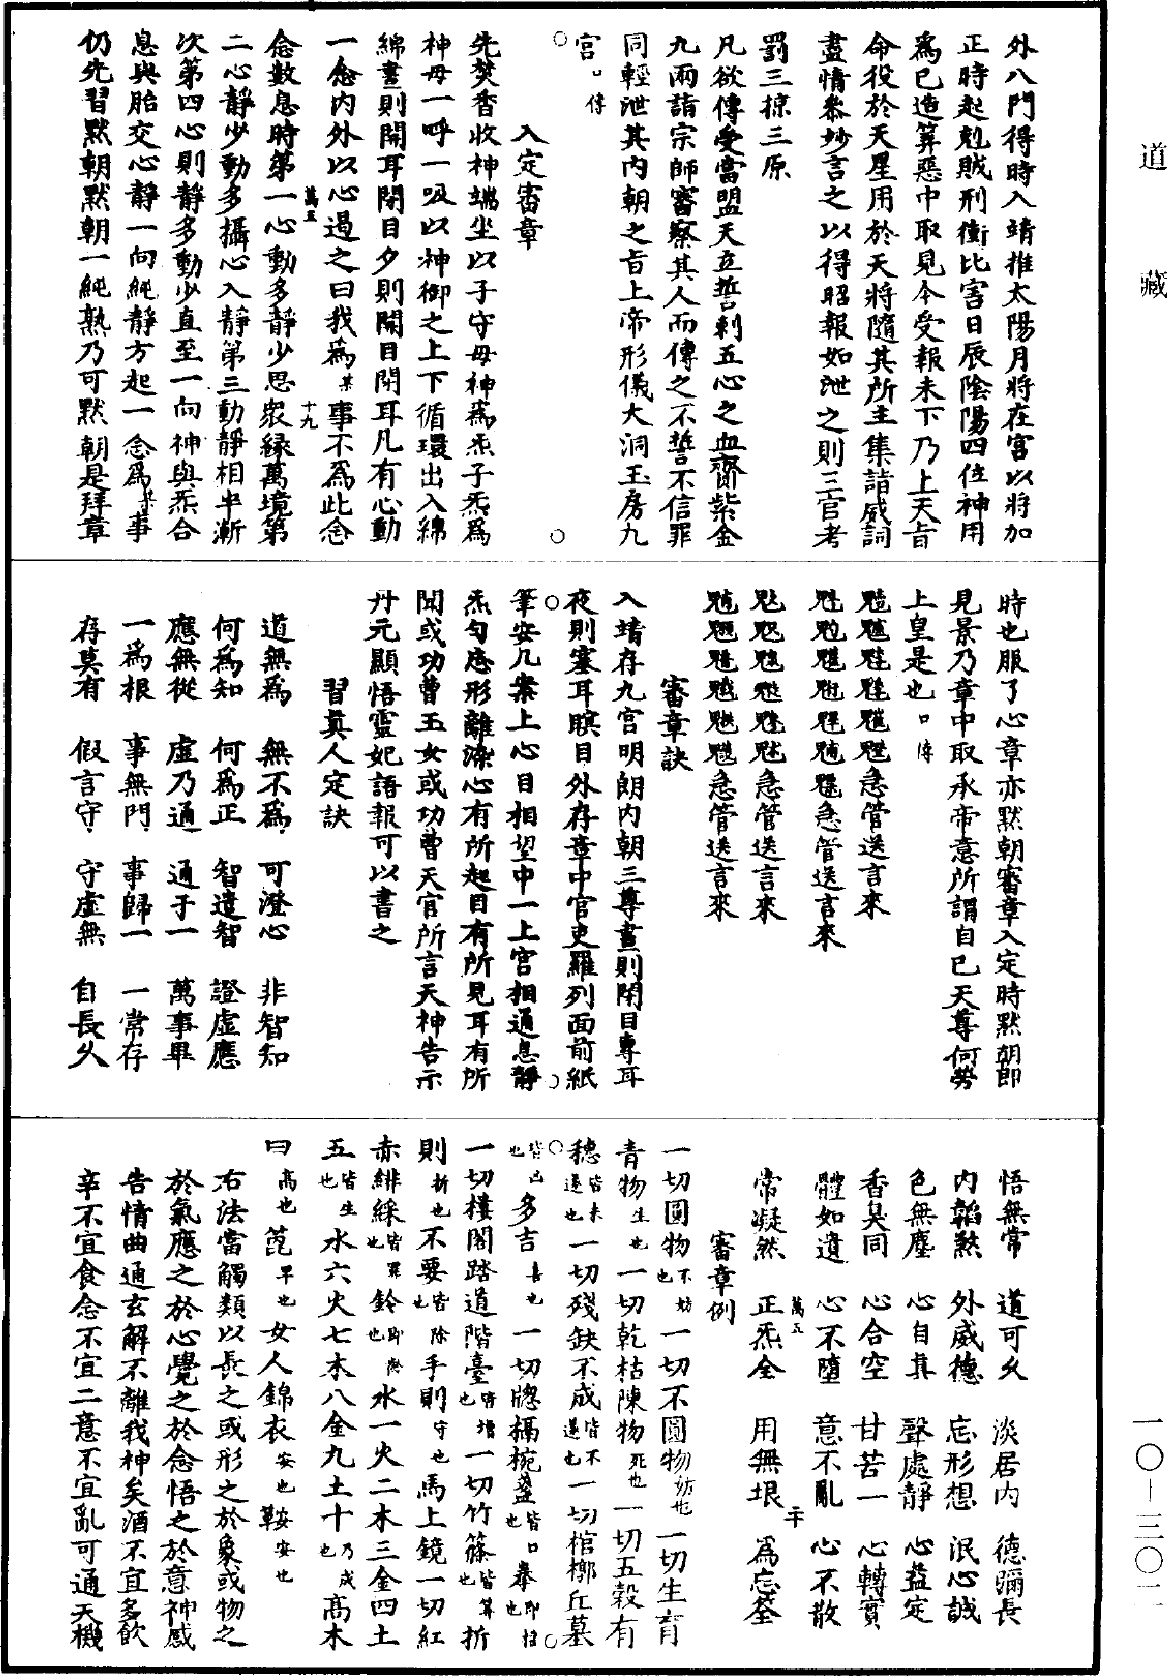 道藏
外八門得時入靖推太陽月將在宮以將加
正時起剋賊刑衝比害日辰陰陽四位神用
為已造筭惡中取見今受報未下乃上天旨
命役於天星用於天將隨其所主集諸威詞
盡情參妙言之以得昭報如泄之則三官考
罰三掠三原
凡欲傳受當盟天立誓刺五心之血齎紫金
九兩詣宗師審察其人而傳之不誓不信罪
同輕泄其內朝之旨上帝形儀大洞玉房九
宮口傳
入定審章
先焚香收神端坐以子守母神為炁子炁為
神母一呼一吸以神御之上下循環出入綿
綿晝則開耳閉目夕則開目閉耳凡有心動
一念內外以心遏之曰我為某事不為此念
萬五 十九
念數息時第一心動多靜少思眾緣萬境第
二心靜少動多攝心入靜第三動靜相半漸
次第四心則靜多動少直至一向神與炁合
息與胎交心靜一向純靜方起一念為某事
仍先習默朝默朝一純熟乃可默朝是拜章
時也服了心章亦默朝審章入定時默朝即
見景乃章中取承帝意所謂自己天尊何勞
上皇是也口傳
急管送言來
急管送言來
急管送言來
急管送言來
審章訣
入靖存九宮明朗內朝三尊晝則閉目專耳
夜則塞耳瞑目外存章中官吏羅列面前紙
筆安几案上心目相望中一上宮相通息靜
炁勻忘形離染心有所起目有所見耳有所
聞或功曹玉女或功曹天官所言天神告示
丹元顯悟靈妃語報可以書之
習真人定訣
道無為 無不為 可澄心 非智知
何為知 何為正 智遣智 證虛應
應無從 虛乃通 通于一 萬事畢
一為根 事無門 事歸一 一常存
存莫有 假言守 守虛無 自長久
悟無常 道可久 淡居內 德彌長
內韜默 外威德 忘形想 泯心誠
色無塵 心自真 聲處靜 心益定
香臭同 心合空 甘苦一 心轉實
體如遺 心不墮 意不亂 心不散
萬五 二十
常凝然 正炁全 用無垠 為忘筌
審章例
一切圓物不妨也一切不圓物妨也一切生育
青物生也一切乾枯陳物死也一切五穀有
穗皆未遂也一切殘缺不成皆不遂也一切棺槨丘墓
皆凶也多吉喜也一切牕槅椀盞皆口也拳即拄也
一切樓閣踏道階臺皆增也一切竹篠皆筭也折
則折也不要皆除也手則守也馬上鏡一切紅
赤緋綵皆罪也鈴即無也水一火二木三金四土
五皆生也水六火七木八金九土十乃成也高木
曰高也范草也女人錦衣安也鞍安安也
右法當觸類以長之或形之於象或物之
於氣應之於心覺之於念悟之於意神感
告情曲通玄解不離我神矣酒不宜多飲
辛不宜食念不宜二意不宜亂可通天機
一〇－三〇二